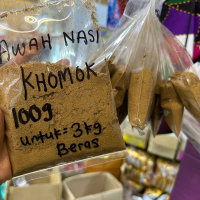 AWAH NASI
KHOMOK
100g
untuk = 3kg
Beras